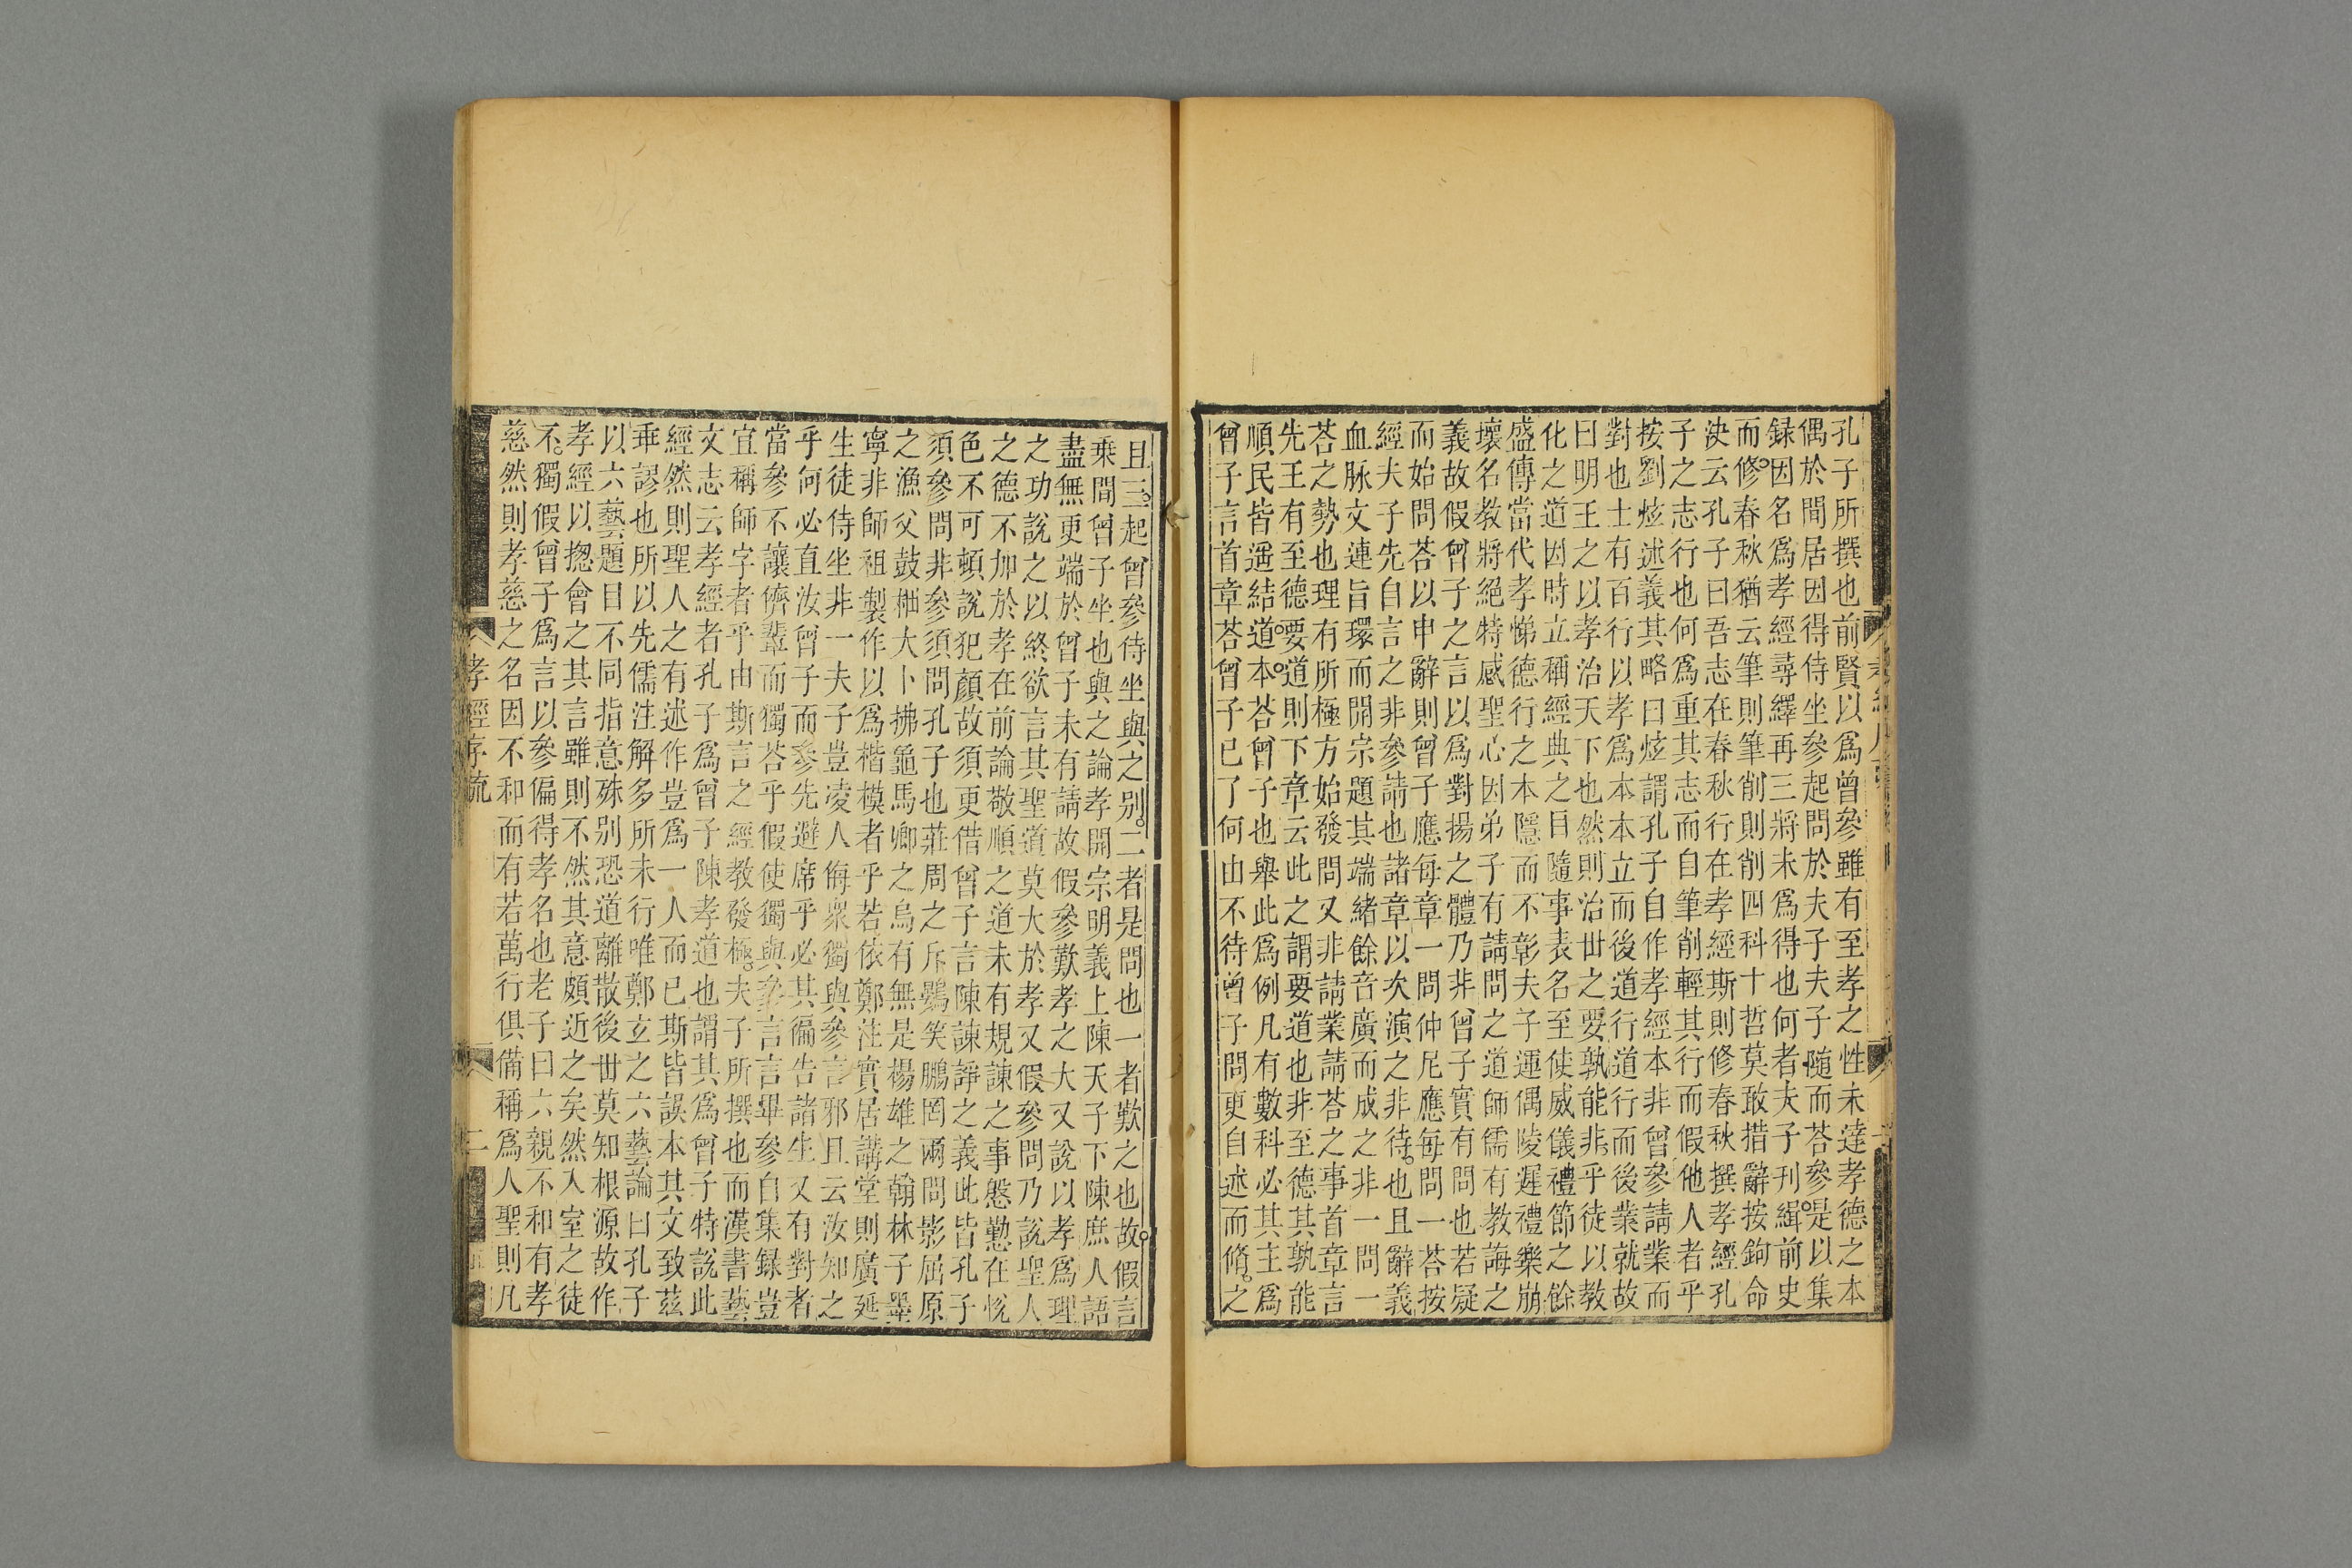 孔子所撰也前賢以爲曾參雖有至孝之性未達孝德之本
偶於間居因得侍坐參起問於夫子夫子隨而荅參是以集
録因名爲孝經尋繹再三將未爲得也何者夫子刊緝前史
而修春秋猶云筆則筆削則削四科十哲莫敢措辭按鉤命
決云孔子曰吾志在春秋行在孝經斯則修春秋撰孝經孔
子之志行也何爲重其志而自筆削輕其行而假他人者乎
按劉炫述義其略曰炫謂孔子自作孝經本非曾參請業而
對也士有百行以孝爲本本立而後道行道行而後業就故
曰明王之以孝治天下也然則治世之要孰能非乎徒以教
化之道因時立稱經典之目隨事表名至使威儀禮節之餘
盛傳當代孝悌德行之本隱而不彰夫子運偶陵遲禮樂崩
壞名教將絕特感聖心因弟子有請問之道師儒有教誨之
義故假曾子之言以爲對揚之體乃非曾子實有問也若疑
而始問荅以申辭則曾子應每章一問仲尼應每問一荅按
經夫子先自言之非參請也諸章以次演之非待也且辭義
血脉文連旨環而開宗題其端緒餘音廣而成之非一問一
荅之勢也理有所極方始發問又非請業請荅之事首章言
先王有至德要道則下章云此之謂要道也非至德其孰能
順民皆遥結道本荅曾子也舉此爲例凡有數科必其主爲
曾子言首章荅曾子已了何由不待曾子問更自述而脩之
且三起曾參侍坐與之别二者是問也一者歎之也故假言
乗間曾子坐也與之論孝開宗明義上陳天子下陳庶人語
盡無更端於曾子未有請故假參歎孝之大又說以孝爲理
之功說之以終欲言其聖道莫大於孝又假參問乃說聖人
之德不加於孝在前論敬順之道未有規諫之事慇懃在悅
色不可頓說犯顏故須更借曾子言陳諫諍之義此皆孔子
須參問非參須問孔子也莊周之斥鷃笑鵬罔兩問影屈原
之漁父鼓枻大卜拂龜馬卿之烏有無是楊雄之翰林子墨
寧非師祖製作以爲楷模者乎若依鄭注實居講堂則廣延
生徒侍坐非一夫子豈凌人侮衆獨與參言邪且云汝知之
乎何必直汝曾子而參先避席乎必其徧告諸生又有對者
當參不讓儕輩而獨荅乎假使獨與參言言畢參自集録豈
宜稱師字者乎由斯言之經教發極夫子所撰也而漢書藝
文志云孝經者孔子爲曾子陳孝道也謂其爲曾子特說此
經然則聖人之有述作豈爲一人而已斯皆誤本其文致茲
乖謬也所以先儒注解多所未行唯鄭玄之六藝論曰孔子
以六藝題目不同指意殊别恐道離散後世莫知根源故作
孝經以揔會之其言雖則不然其意頗近之矣然入室之徒
不獨假曾子爲言以參偏得孝名也老子曰六親不和有孝
慈然則孝慈之名因不和而有若萬行俱備稱爲人聖則凡
孝經序疏
二